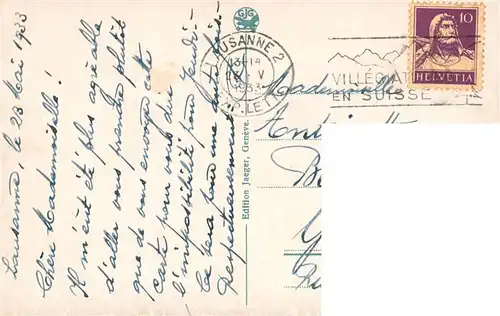 Lausanne, le 23 Mai 1933
Chère Mademoiselle!
Il m'eut été plus agréable
d'aller vous prendre plutôt
que de vous envoyer cette
carte pour vous dire
l'impossibilité pour jeudi.
Ce sera pour une autre fois.
Respectueusement
Edition Jaeger, Genève.
LAUSANNE 2
V
1933
EXP. LETT
VILLÉGIAT
EN SUISSE
10
HELVETIA
Mademoiselle